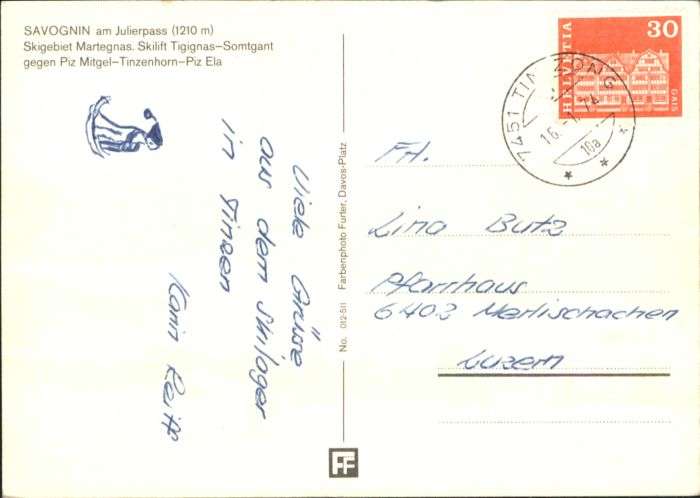 SAVOGNIN am Julierpass (1210 m)
Skigebiet Martegnas. Skilift Tigignas–Somtgant
gegen Piz Mitgel–Tinzenhorn–Piz Ela
Viele Grüsse
aus dem Skilager
in Tinzen
Karin
No. 012-511 Farbenphoto Furter, Davos-Platz
FF
HELVETIA
30
GAIS
7451 TIN ZONG
16.-1.74
16a
Frl.
Lina Butz
Pfarrhaus
6402 Merlischachen
Luzern